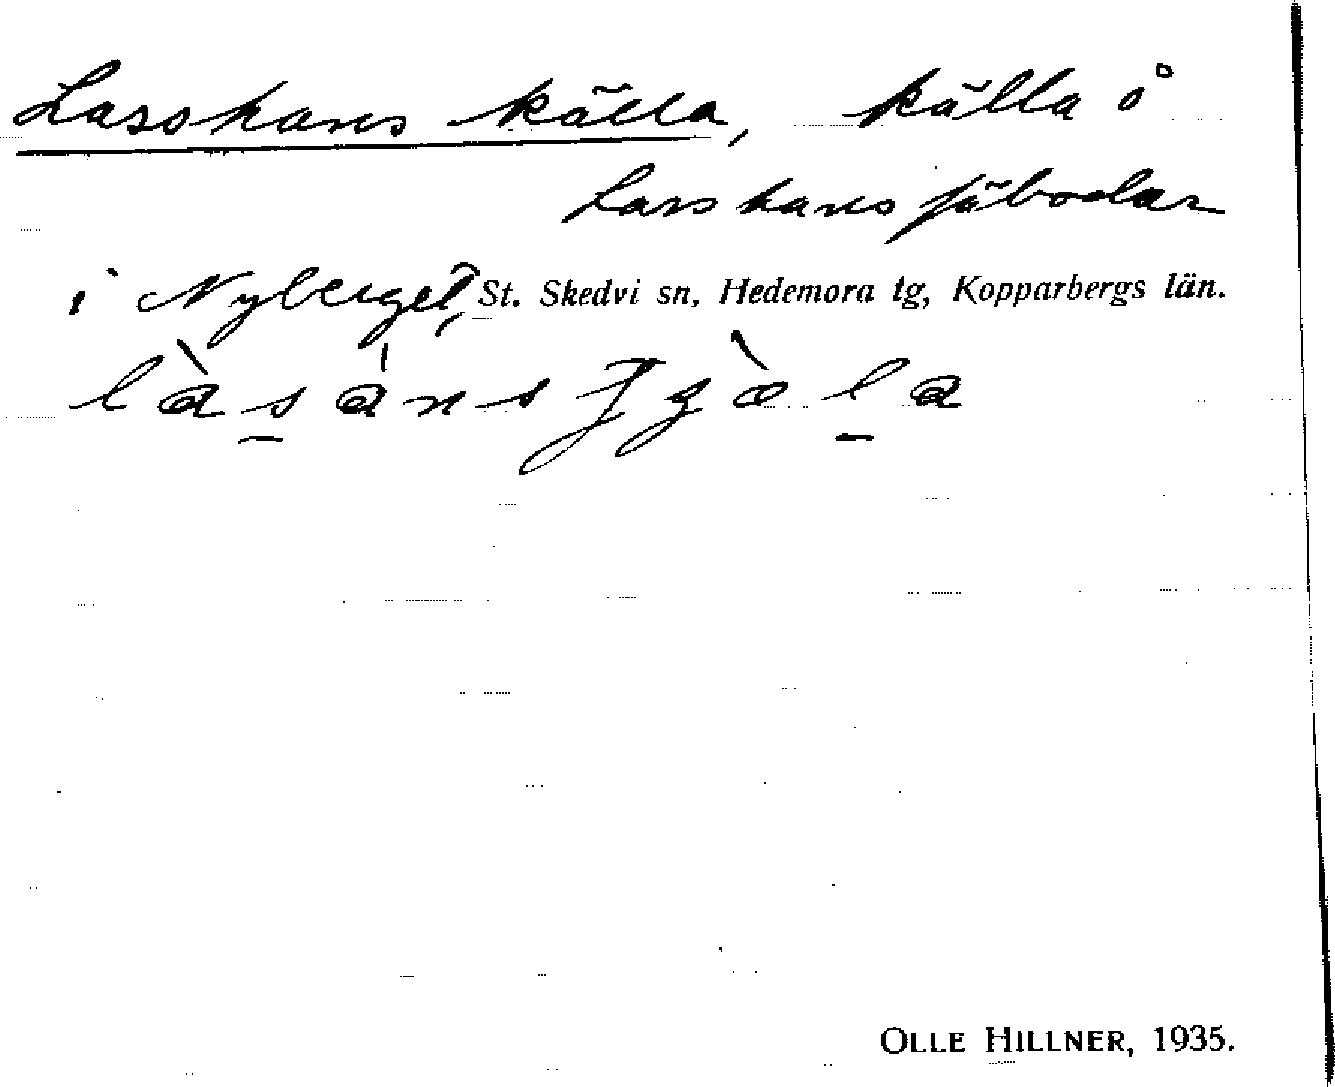 Lasshans källa, källa å
Lasshans säbodar
i Nyberget, St. Skedvi sn, Hedemora tg, Kopparbergs län.
OLLE HILLNER, 1935.